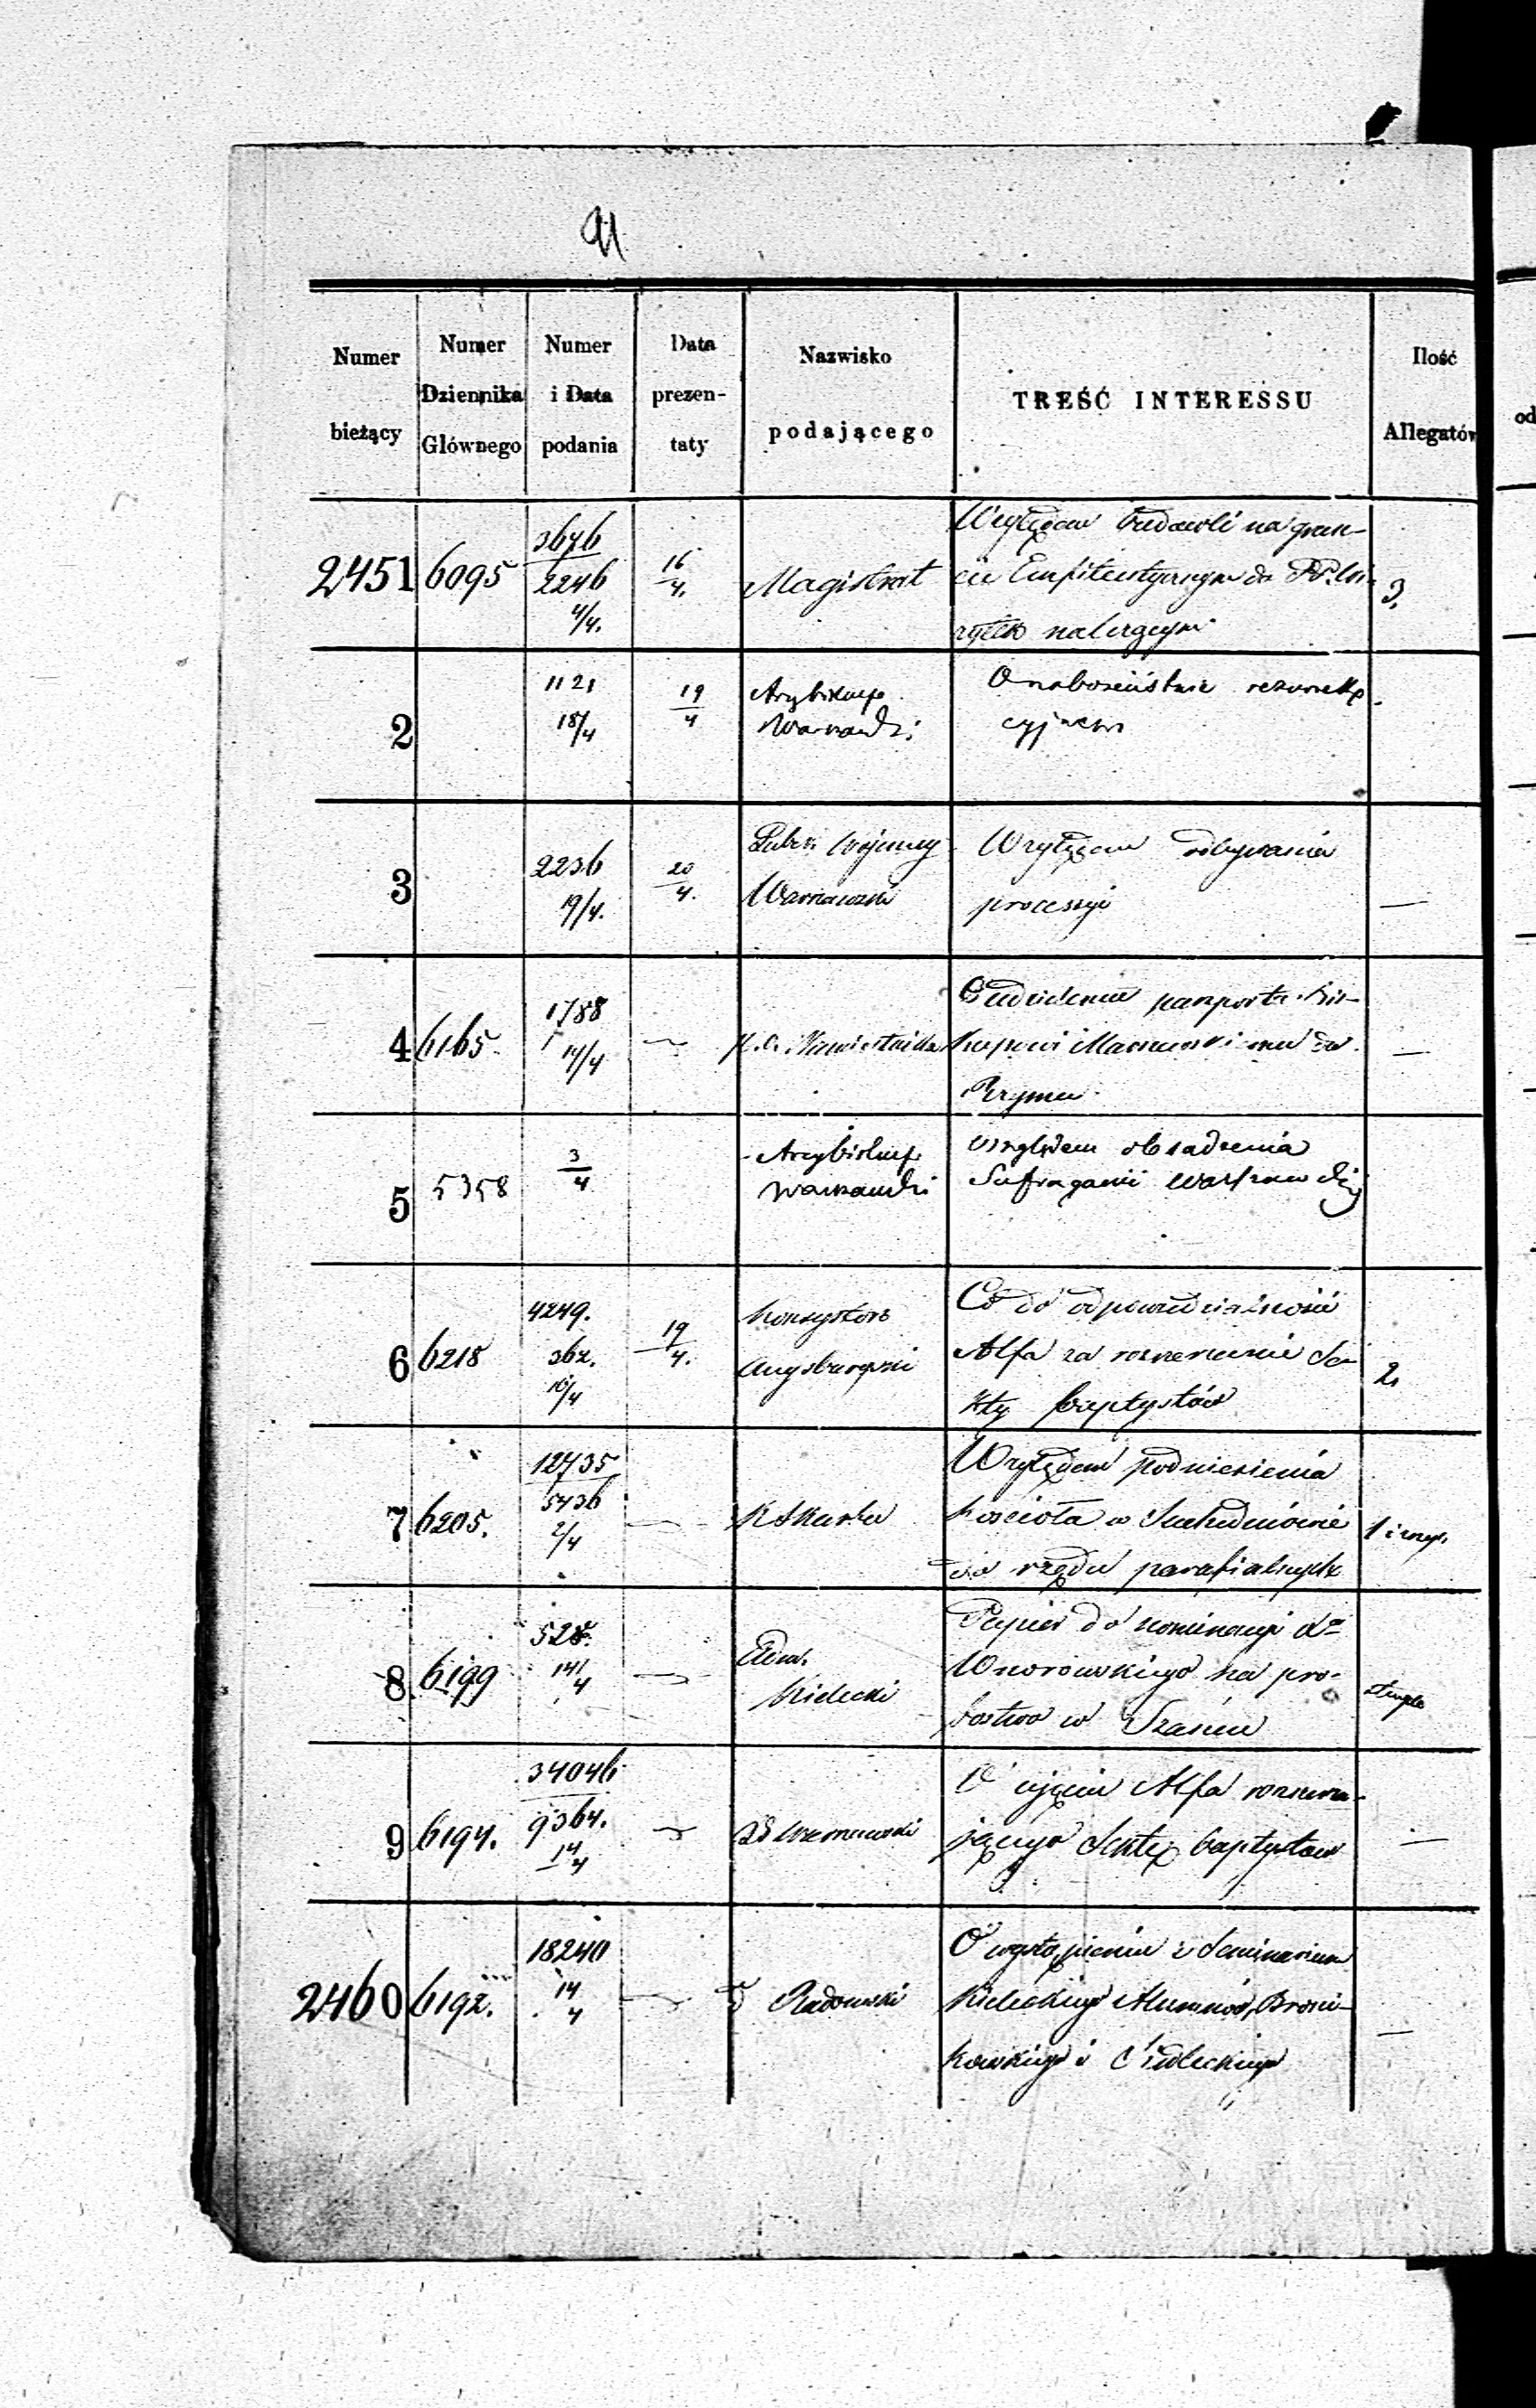 91
Numer bieżący
Numer Dziennika Głównego
Numer i Data podania
Data prezen- taty
Nazwisko podającego
TREŚĆ INTERESSU
Ilość Allegatów
od
2451 6095
3676
2246
4/4.
16/4.
Magistrat
Względem budowli na grun-
cie Emfiteutycznym do PP.
należącym
3.
2
1121
18/4
19/4
Arcybiskup
Warszawski
O nabożeństwie rezurek
cyjnem
3
2236
19/4.
20/4.
Wojenny
Warszawski
Względem odbywania
processyi
—
4 6165.
1788
14/4
Namiestnika
O udzielenie paszportu Bis-
kupowi do
Rzymu
—
5 5358
3/4
Arcybiskup
Warszawski
względem obsadzenia
Sufraganii Warszawskiej
6 6218
4249.
362.
16/4
19/4.
Konsystorz
Augsburgski
Co do odpowiedzialności
Alfa za rozszerzenie Se-
kty baptystów
2.
7 6205.
12735
5436
2/4
K Skarbu
Względem podniesienia
kościoła w Suchedniowie
do rzędu parafialnych
1
8 6199
528.
14/4
Adm.
Kielecki
Papier do nominacyi dla
Wnorowskiego na pro-
bostwo w
stempl
9 6194.
34046
9364.
14/4
Warszawski
O ujęciu Alfa rozszerza-
jącego Sektę baptystów
—
2460 6192.
18240
14/4
Radomski
O wystąpieniu z Seminarium
Kieleckiego Alumnów, Broni-
kowskiego i Siedleckiego
—